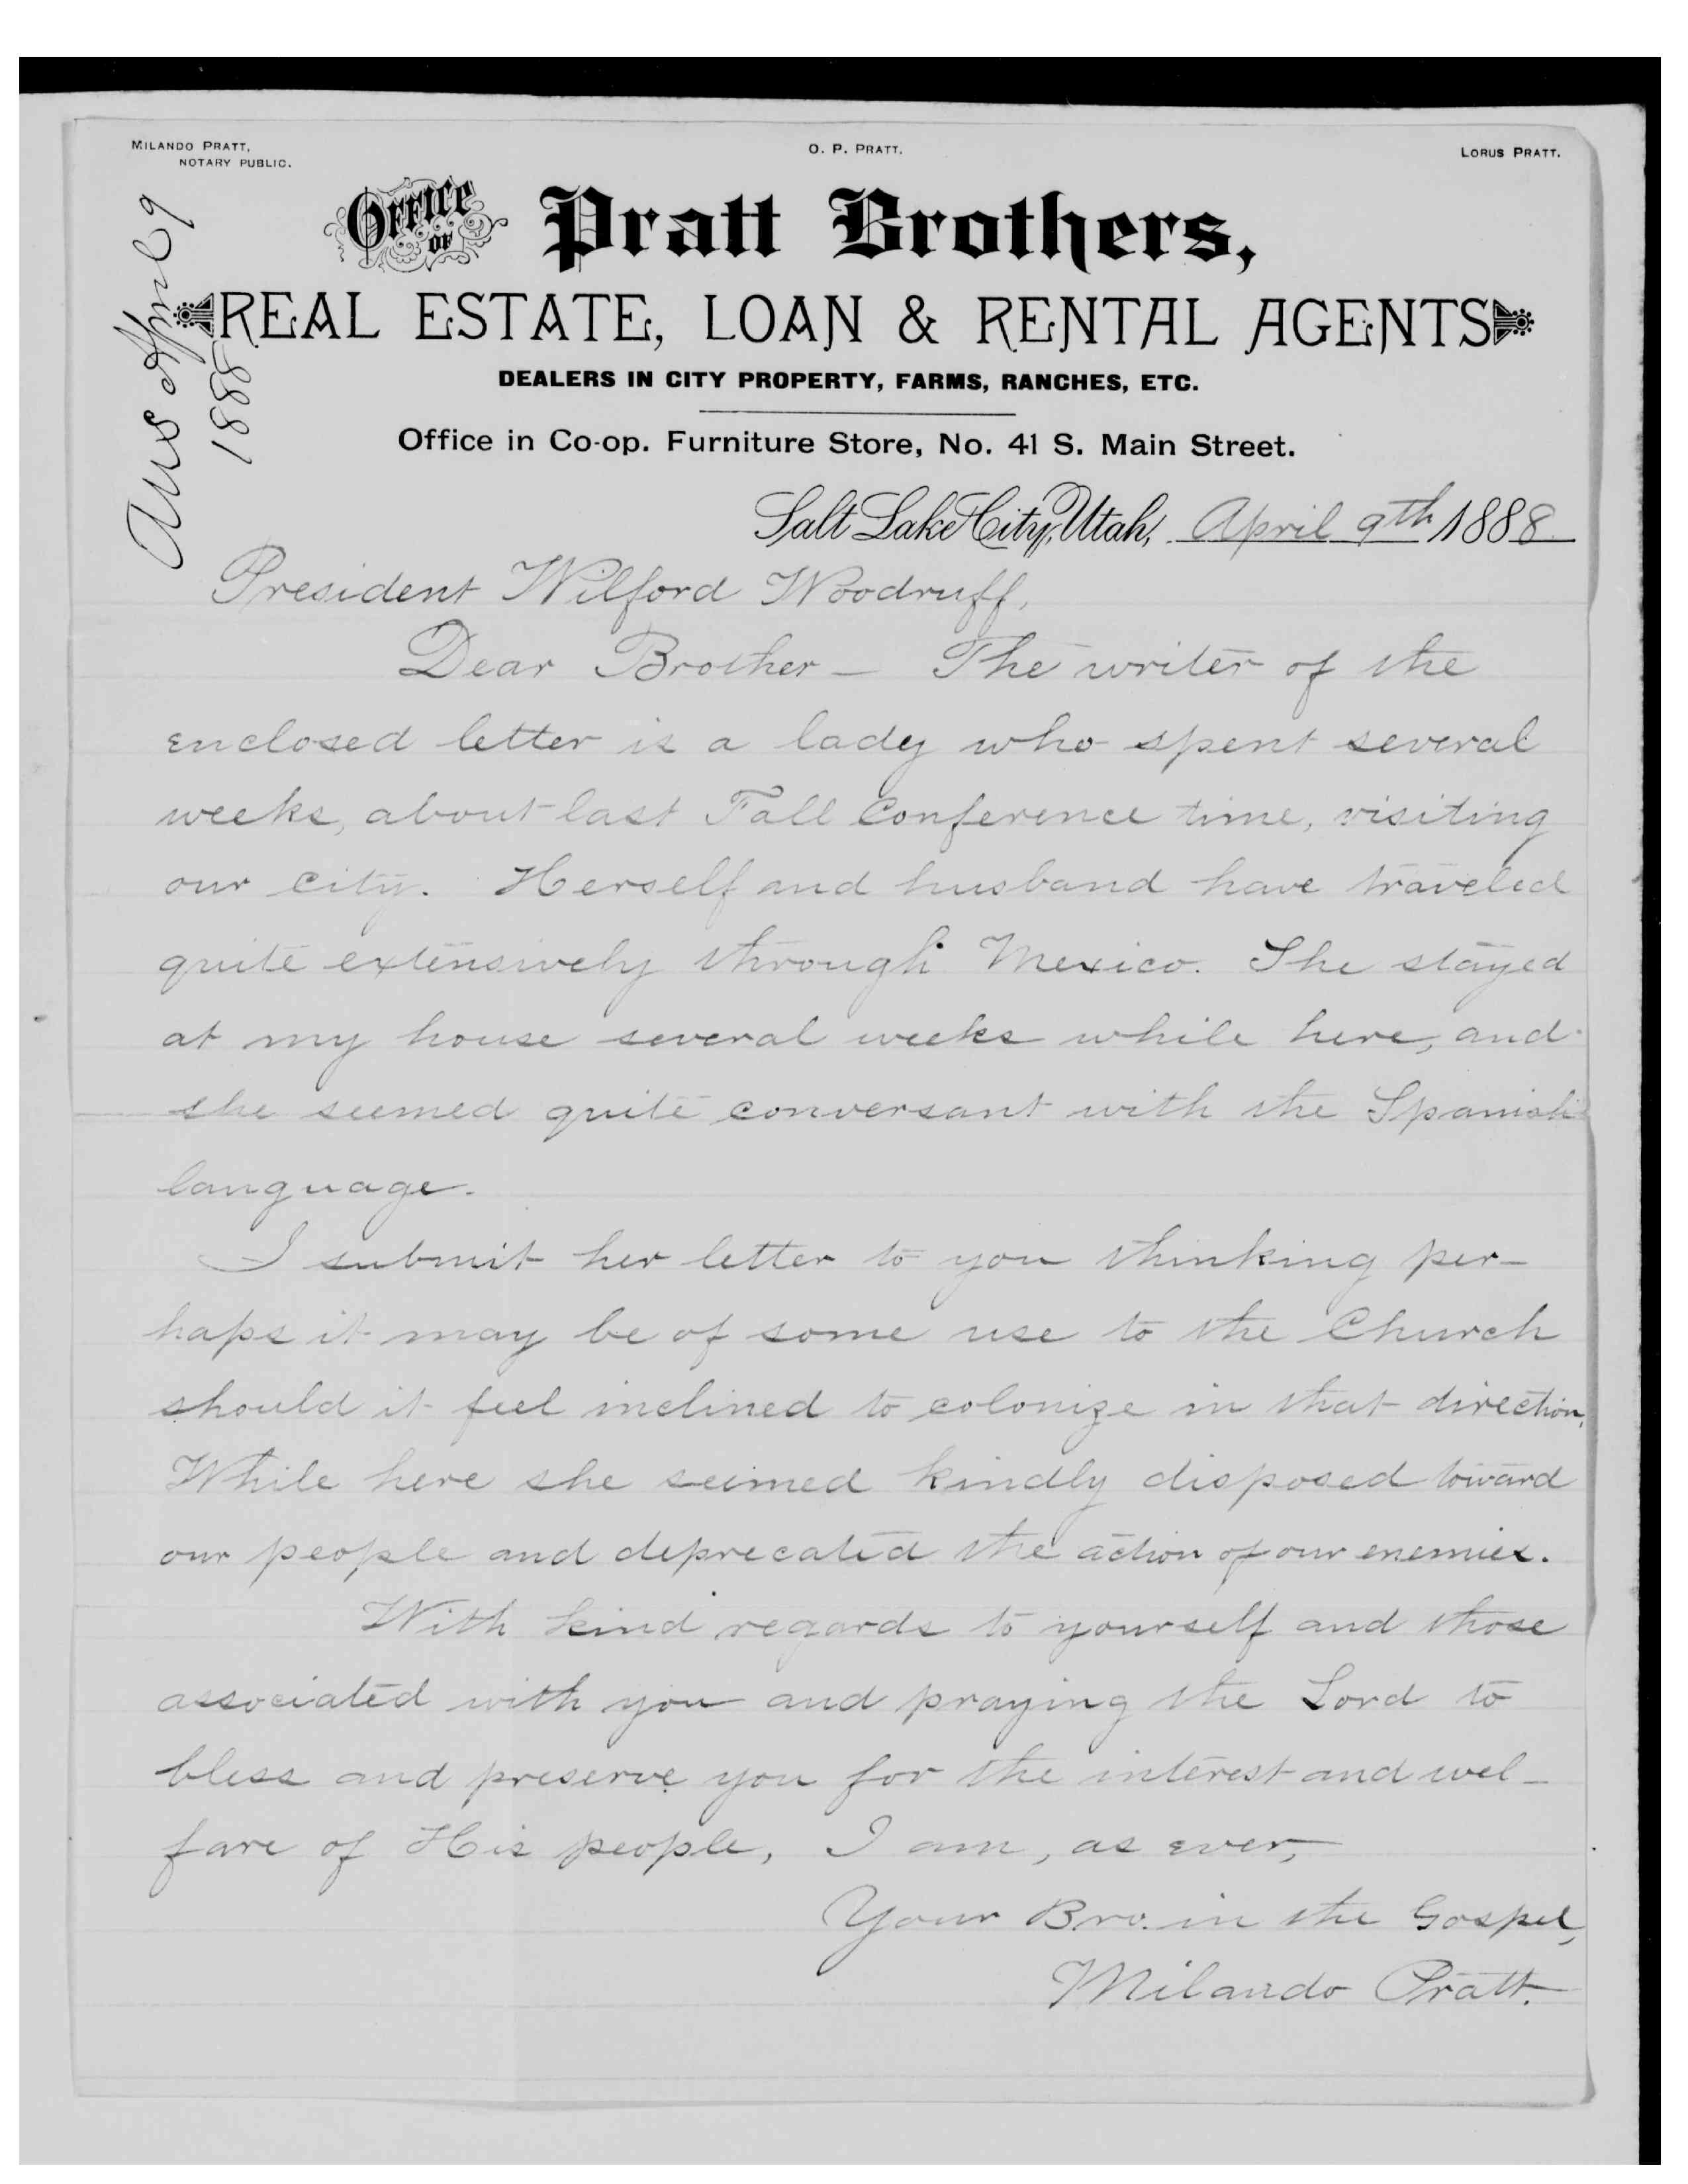 MILANDO PRATT,
NOTARY PUBLIC.
O. P. PRATT.
LORUS PRATT.
Office of Pratt Brothers,
REAL ESTATE, LOAN & RENTAL AGENTS
DEALERS IN CITY PROPERTY, FARMS, RANCHES, ETC.
Office in Co-op. Furniture Store, No. 41 S. Main Street.
Ans April 9
1888
Salt Lake City, Utah, April 9th 1888
President Wilford Woodruff,
Dear Brother – The writer of the
enclosed letter is a lady who spent several
weeks, about last Fall Conference time, visiting
our city. Herself and husband have traveled
quite extensively through Mexico. She stayed
at my house several weeks while here, and
she seemed quite conversant with the Spanish
language.
I submit her letter to you thinking per-
haps it may be of some use to the Church
should it feel inclined to colonize in that direction.
While here she seemed kindly disposed toward
our people and deprecated the action of our enemies.
With kind regards to yourself and those
associated with you and praying the Lord to
bless and preserve you for the interest and wel-
fare of His people, I am, as ever,
Your Bro. in the Gospel,
Milando Pratt.